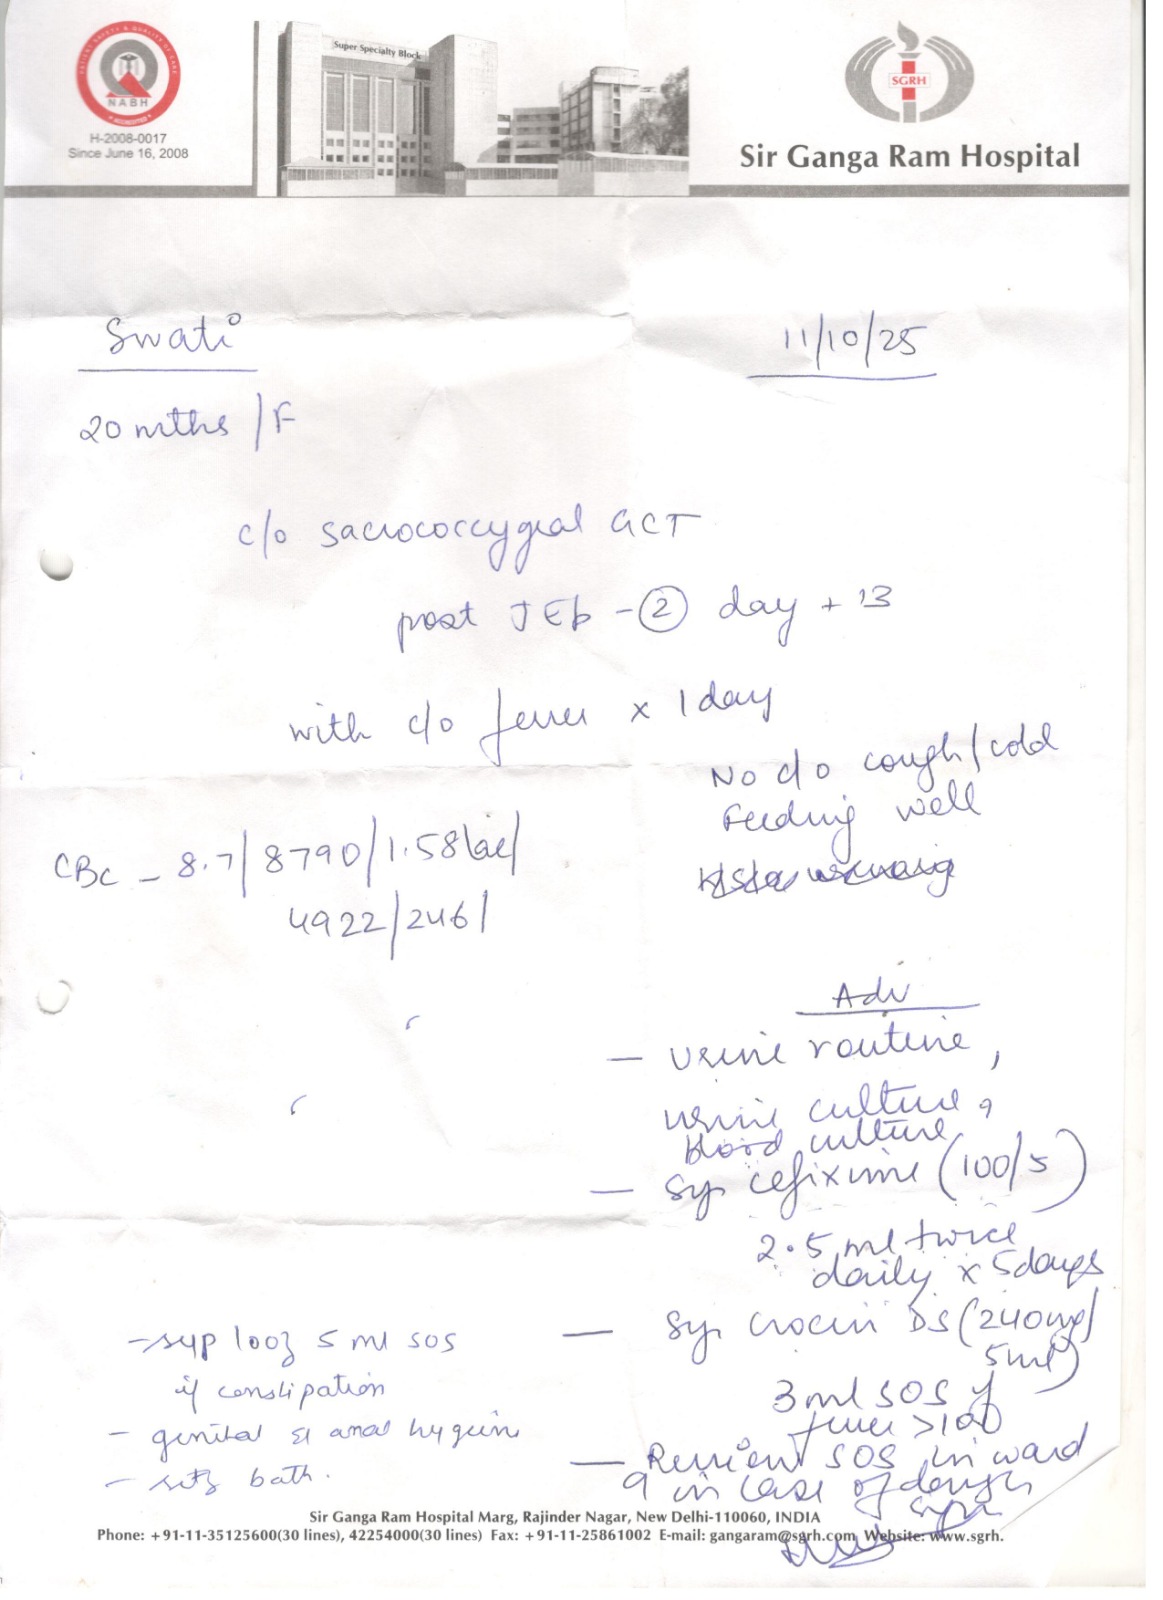 PATIENT SAFETY & QUALITY OF CARE
NABH
ACCREDITED
H-2008-0017
Since June 16, 2008
Super Specialty Block
SGRH
Sir Ganga Ram Hospital
Swati
11/10/25
20 mths /F
c/o sacrococcygeal GCT
post JEb - ② day + 13
with c/o fever x 1 day
No c/o cough/cold
Feeding well
CBC - 8.7/ 8790/1.58lac/
4922/246/
Adv
- Urine routine,
urine culture,
blood culture
- Syp cefixime (100/5)
2.5 ml twice
daily x 5days
- Syp crocin DS (240mg/
5ml)
3 ml SOS if
fever >100
- Review SOS in ward
9 in case of danger
- syp looz 5 ml sos
if constipation
- genital & anal hygiene
- sitz bath.
Sir Ganga Ram Hospital Marg, Rajinder Nagar, New Delhi-110060, INDIA
Phone: +91-11-35125600(30 lines), 42254000(30 lines) Fax: +91-11-25861002 E-mail: gangaram@sgrh.com Website: www.sgrh.